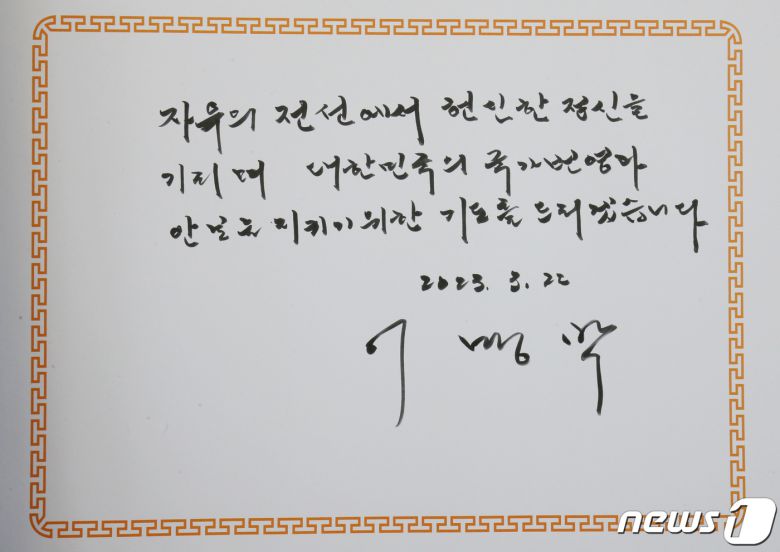 자유의 전선에서 헌신한 정신을
기리며 대한민국의 국가번영과
안보를 지키기위한 기도를 드리겠습니다
2023. 3. 22
이 명 박
news1